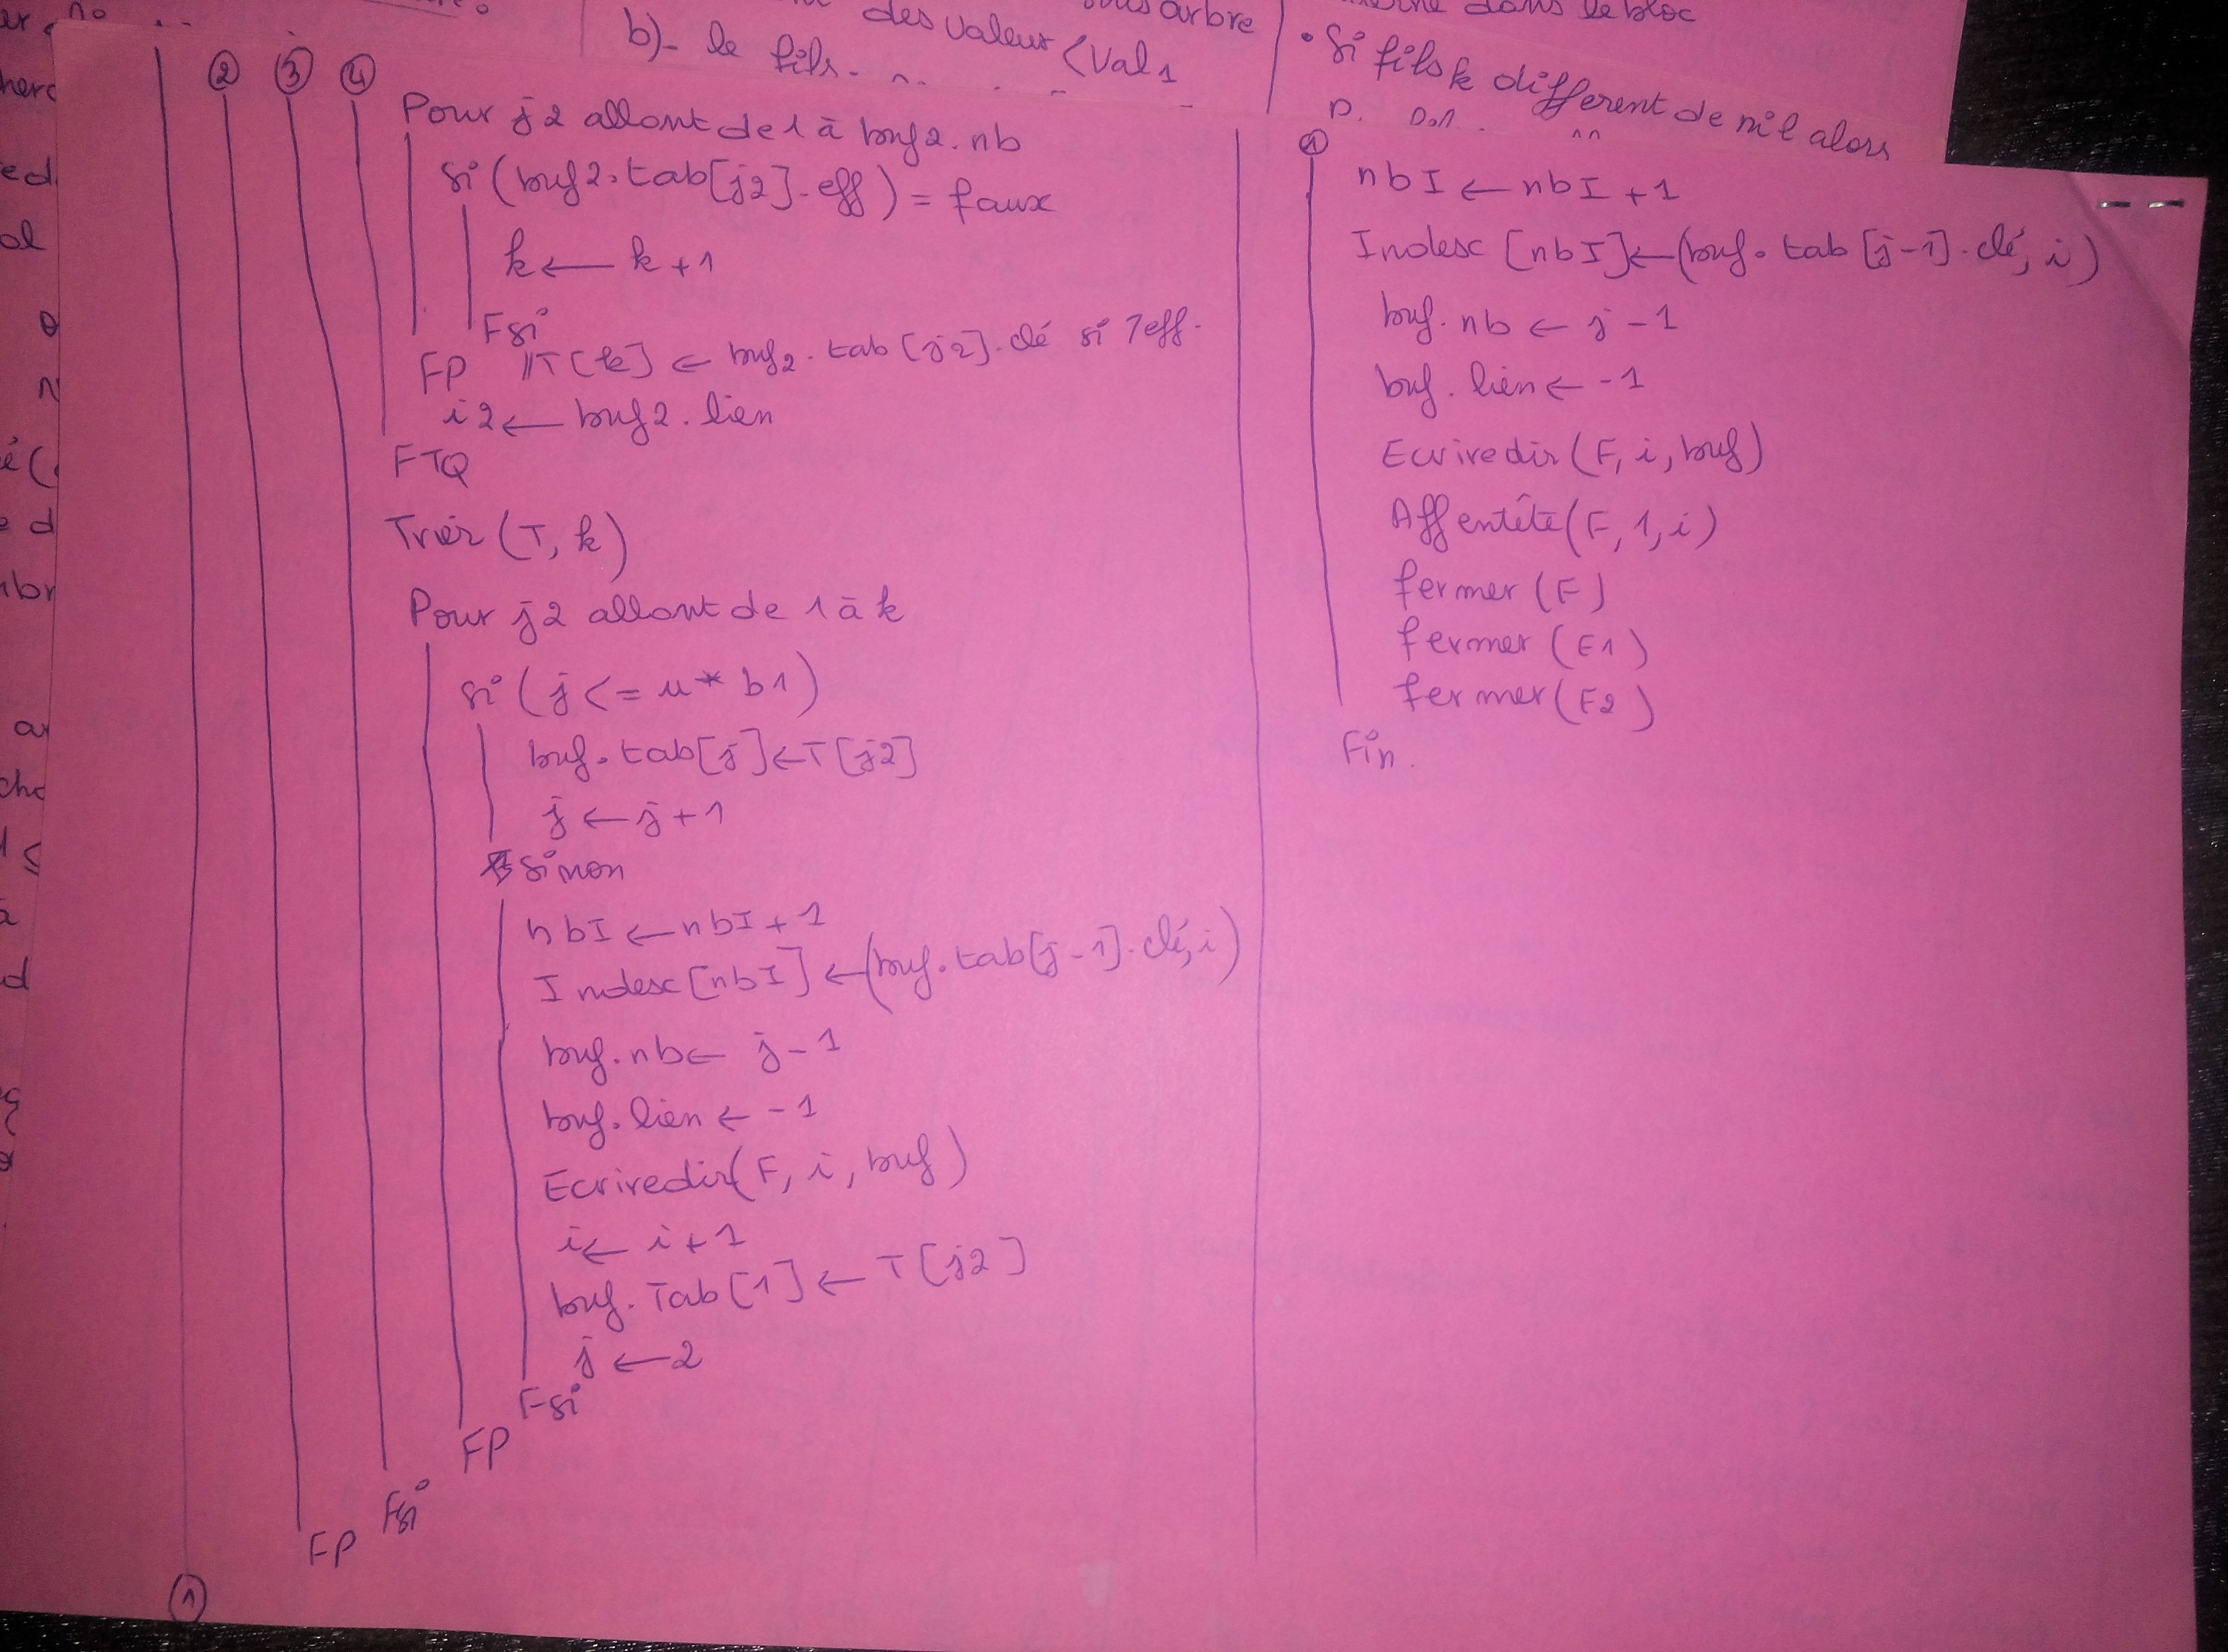 sous arbre
des valeur < Val1
b)- le fils
dans le bloc
• Si fils k different de nil alors
② ③ ④
Pour j2 allant de 1 à buf2.nb
si (buf2.tab[j2].eff) = faux
k ← k+1
Fsi
FP //T[k] ← buf2.tab[j2].clé si 7eff.
i2 ← buf2.lien
FTQ
Trier (T, k)
Pour j2 allant de 1 à k
si (j <= u * b1)
buf.tab[j] ← T[j2]
j ← j+1
sinon
nbI ← nbI + 1
Indesc [nbI] ← (buf.tab[j-1].clé, i)
buf.nb ← j - 1
buf.lien ← -1
Ecriredir(F, i, buf)
i ← i+1
buf.Tab[1] ← T[j2]
j ← 2
Fsi
FP
Fsi
FP
①
①
nbI ← nbI + 1
Indesc [nbI] ← (buf.tab [j-1].clé, i)
buf.nb ← j - 1
buf.lien ← -1
Ecriredir (F, i, buf)
Affentête (F, 1, i)
fermer (F)
fermer (F1)
fermer (F2)
Fin.